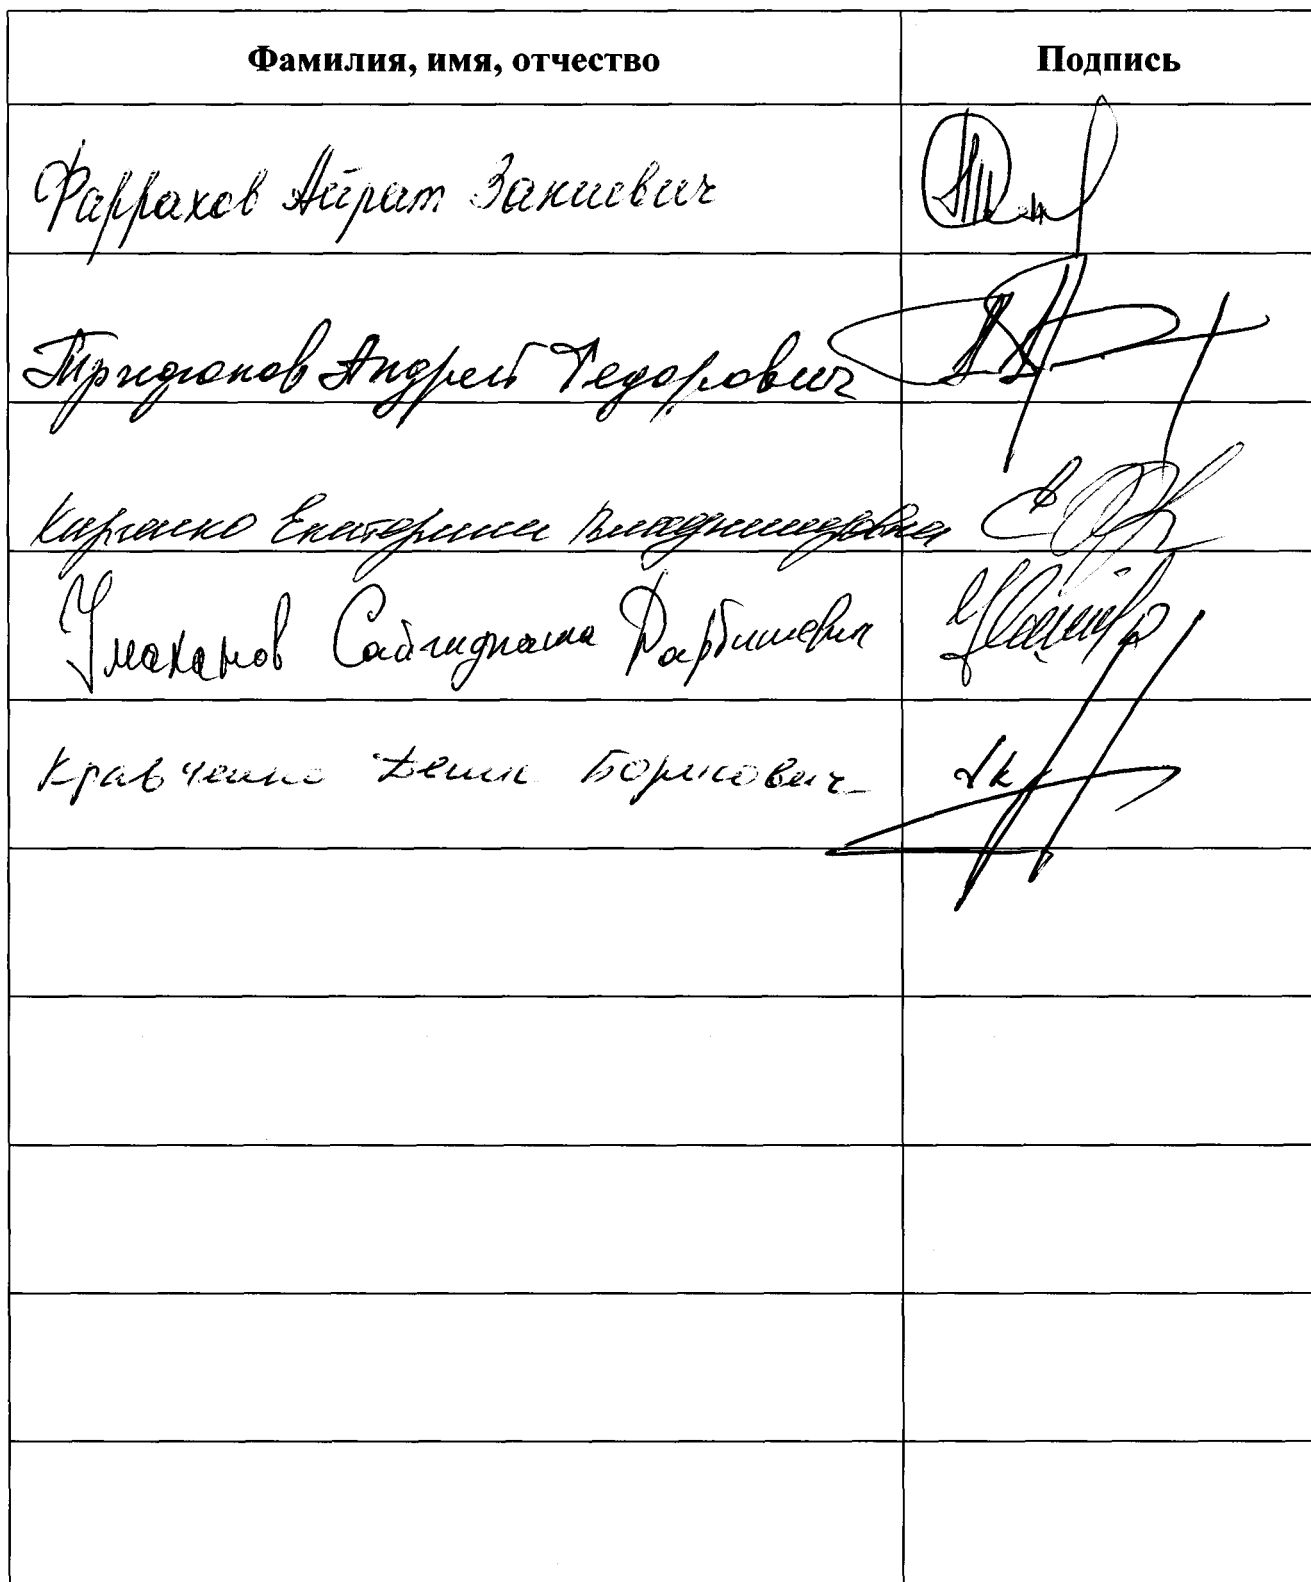 Фамилия, имя, отчество Подпись
Фаррахов Айрат Закиевич
Андрей Федорович
Харченко Екатерина Владимировна
Умаханов Сайгидпаша Дарбишевич
Кравченко Денис Борисович